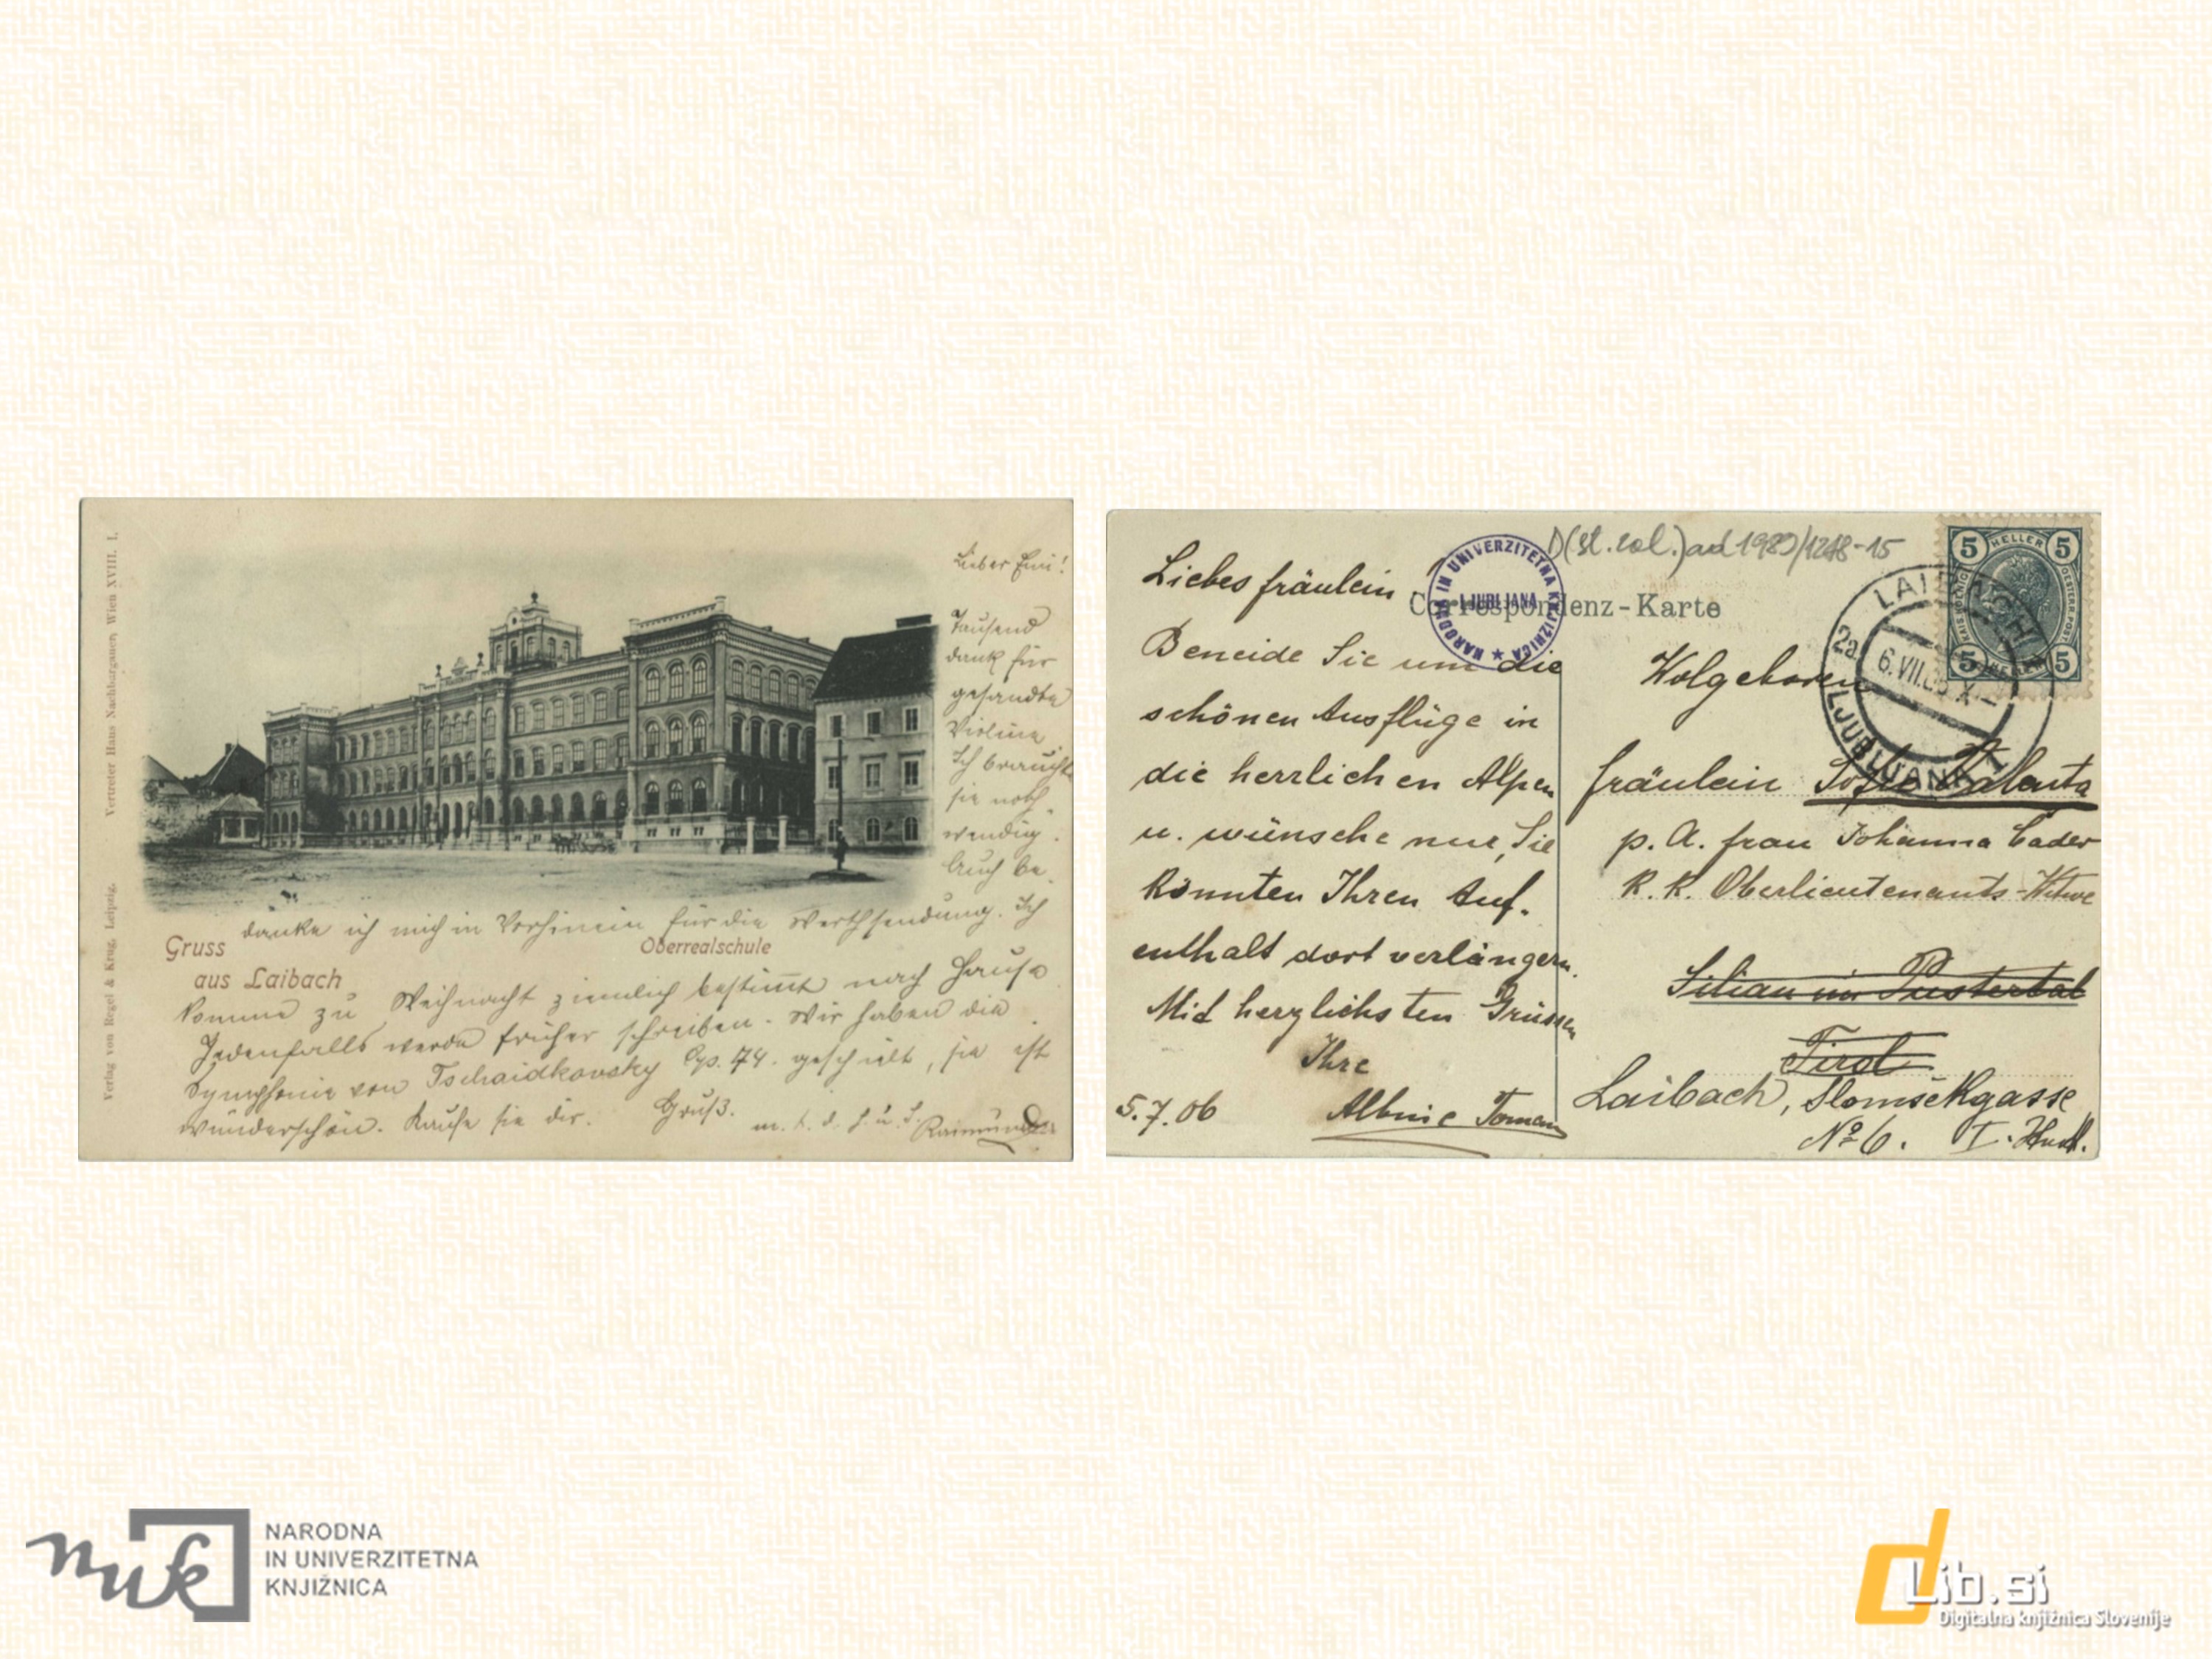 Vertreter Hans Nachbargauer, Wien XVIII. I.
Verlag von Regel & Krug, Leipzig.
Lieber
Tausend
dank für
gesandte
Violine
Ich brauchte
sie noth-
wendig.
Auch be-
danke ich mich in Vorhinein für die Werthsendung. Ich
Gruss
aus Laibach
Oberrealschule
komme zu Weihnacht ziemlich bestimt nach Hause
Jedenfalls werde früher schreiben. Wir haben die
Symphonie von Tschaidkovsky Op. 74. gespielt, sie ist
wunderschön. Kaufe sie dir. Gruß.
Raimund
D(sl. col.) ad 1989/1248-15
NARODNA IN UNIVERZITETNA KNJIŽNICA ★
LJUBLJANA
Correspondenz-Karte
Liebes fräulein
Beneide Sie um die
schönen Ausflüge in
die herrlichen Alpen
u. wünsche nur, Sie
könnten Ihren Auf-
enthalt dort verlängern.
Mit herzlichsten Grüssen
Ihre
5.7.06 Toman
5 HELLER 5
5 5
LAIBACH
2a
6.VII.
LJUBLJANA 1
Wolgeboren
fräulein Sofie
p. A. frau Johanna
K. K. Oberlieutenants-Witwe
Silian im Pustertal
Tirol
Laibach, Slomšekgasse
№ 6. I.
nuk
NARODNA
IN UNIVERZITETNA
KNJIŽNICA
dLib.si
Digitalna knjižnica Slovenije